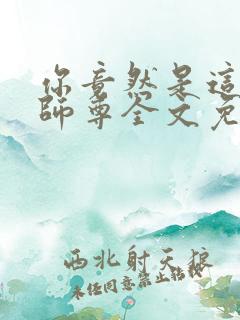 你竟然是這
師尊全文免
西北射天狼
未任同意禁止轉載